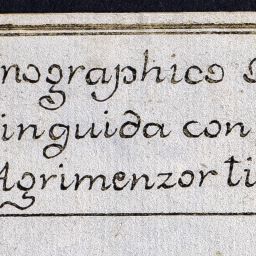 nographico
inguida con
Agrimenzor ti